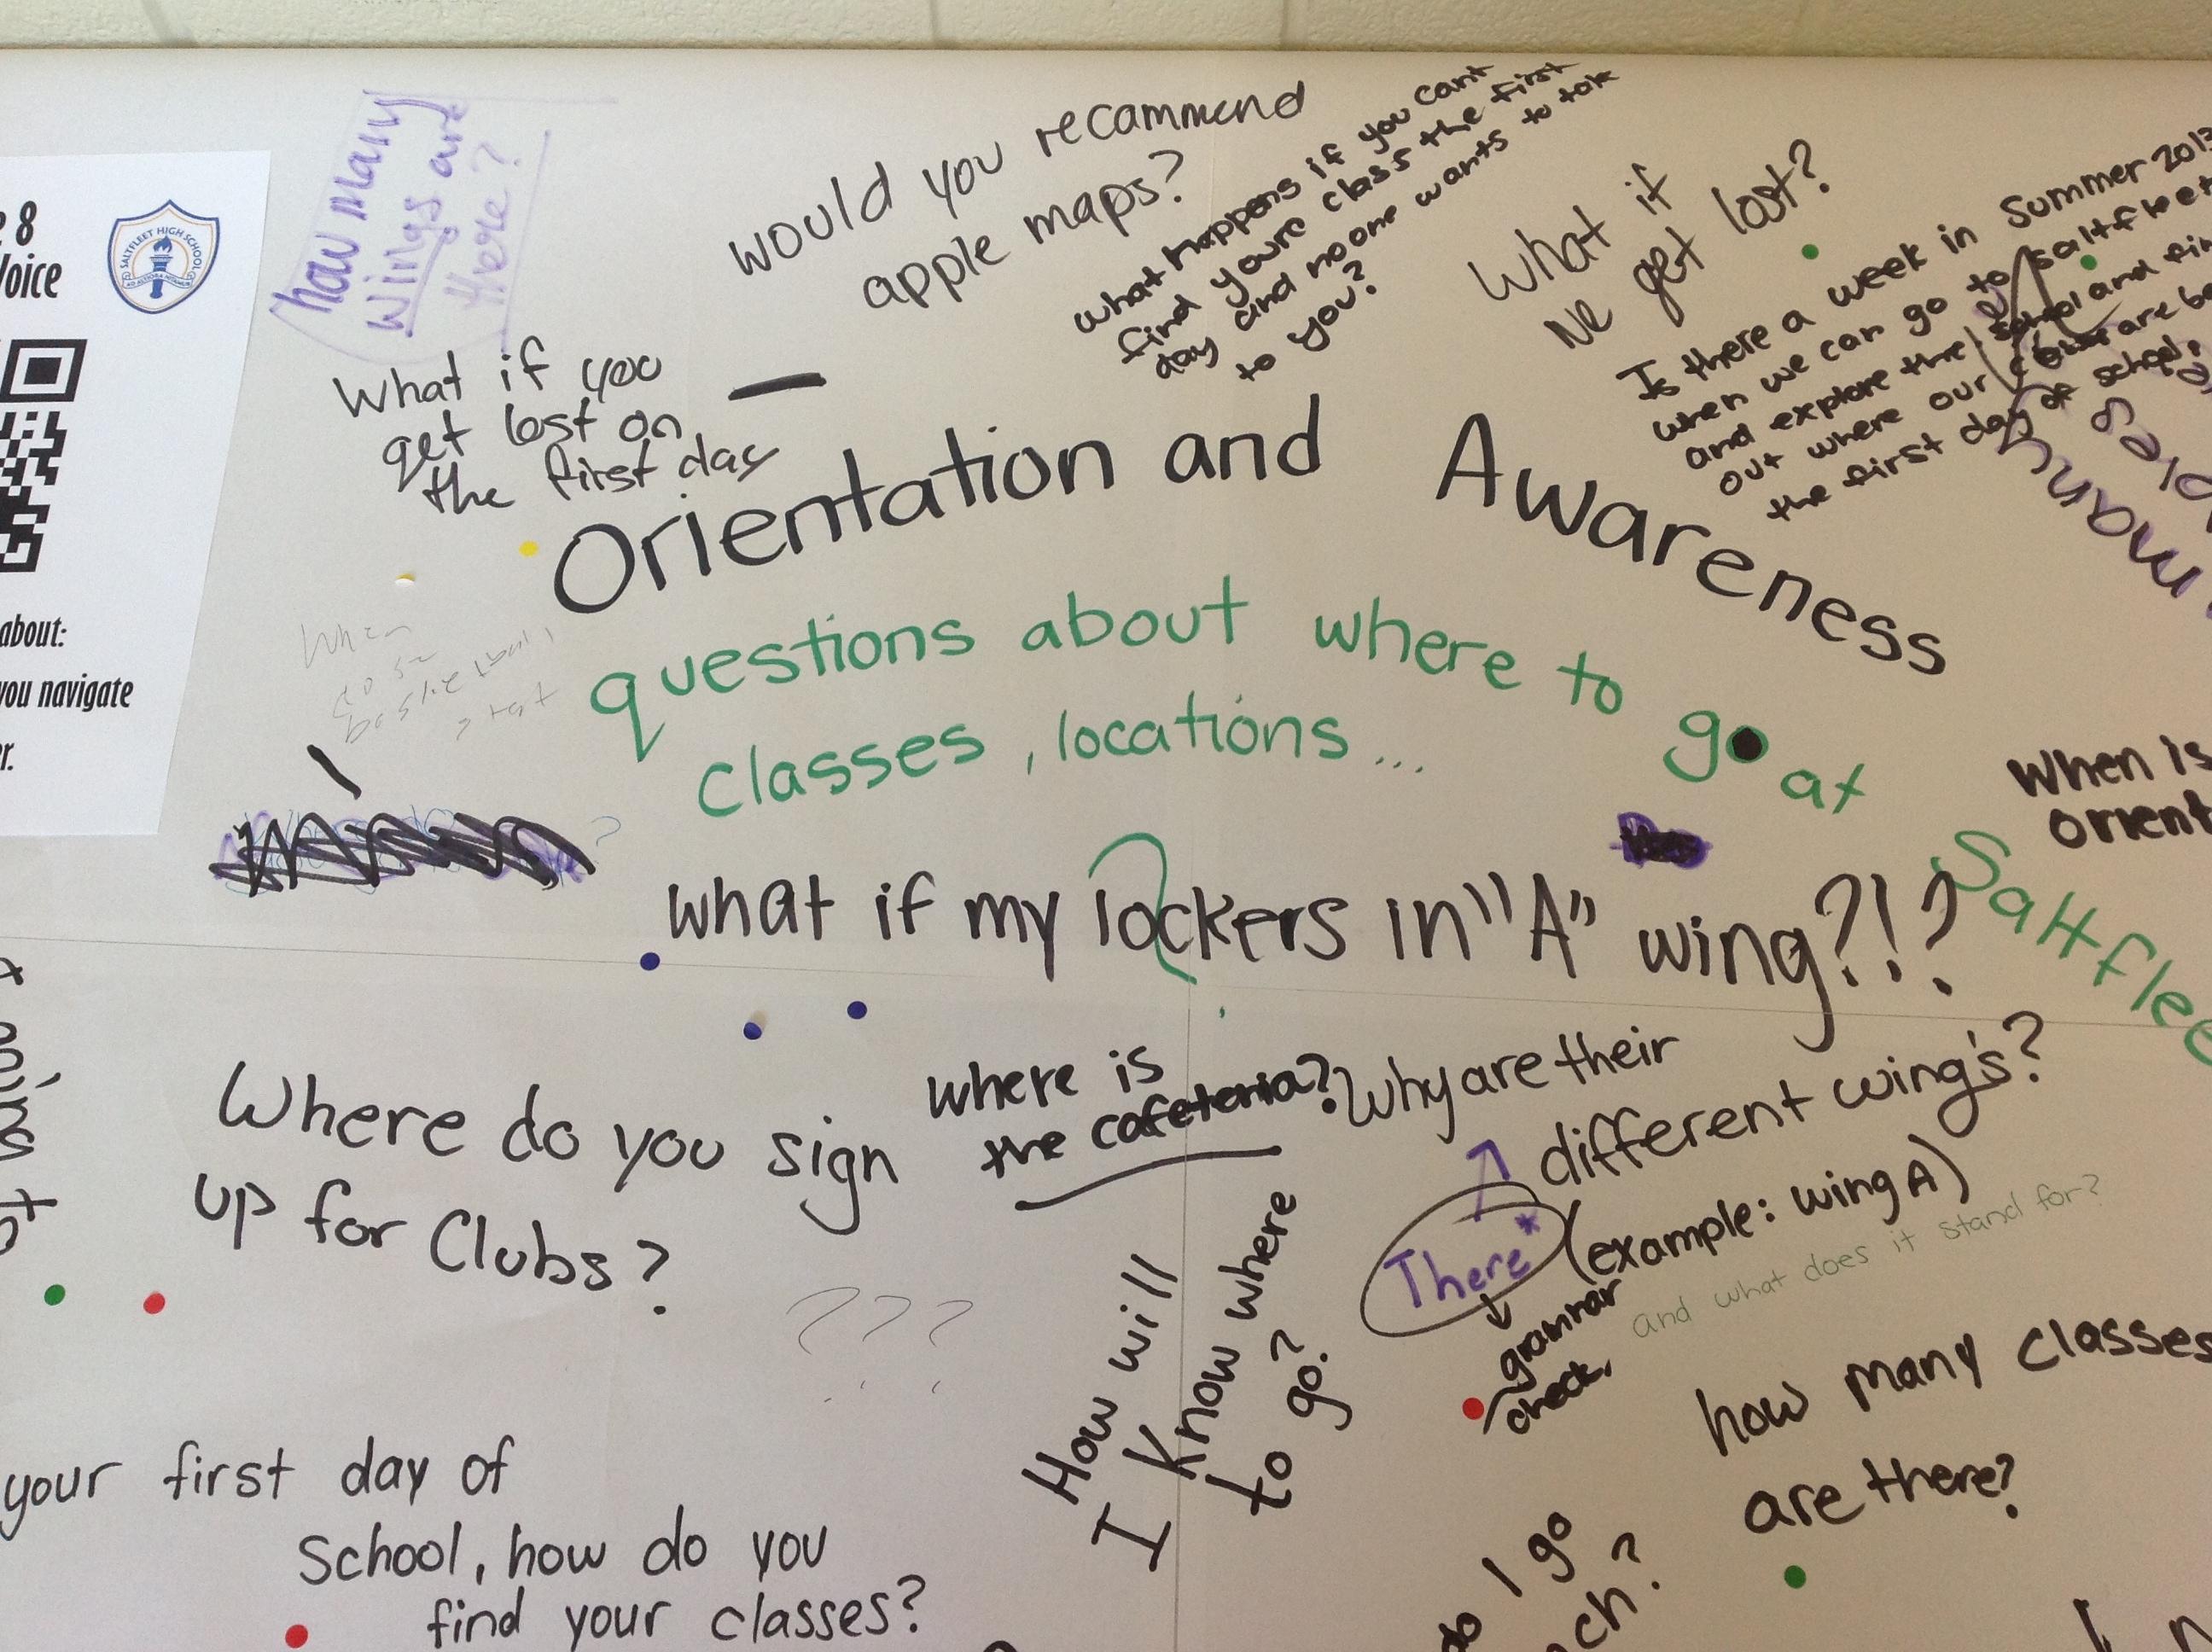 how many
wings are
there?
would you recommend
apple maps?
what happens if you cant
find youre class the first
day and no one wants to talk
to you?
What if
we get lost?
Is there a week in Summer 2013
when we can go to saltfleet
and explore the school and
out where our
the first day of school.
many
e 8
Voice
SALTFLEET HIGH SCHOOL
about:
you navigate
r.
What if you
get lost on
the first day
Orientation and Awareness
questions about where to go at
Saltflee
classes, locations...
When
basketball
start
When is
orient
what if my lockers in "A" wing?!?
Where do you sign
up for Clubs?
where is
the cafeteria?
Why are their
different wing's?
(example: wing A)
and what does it stand for?
There*
grammar
check.
???
How will
I know where
to go?
how many classes
are there?
your first day of
School, how do you
find your classes?
do I go